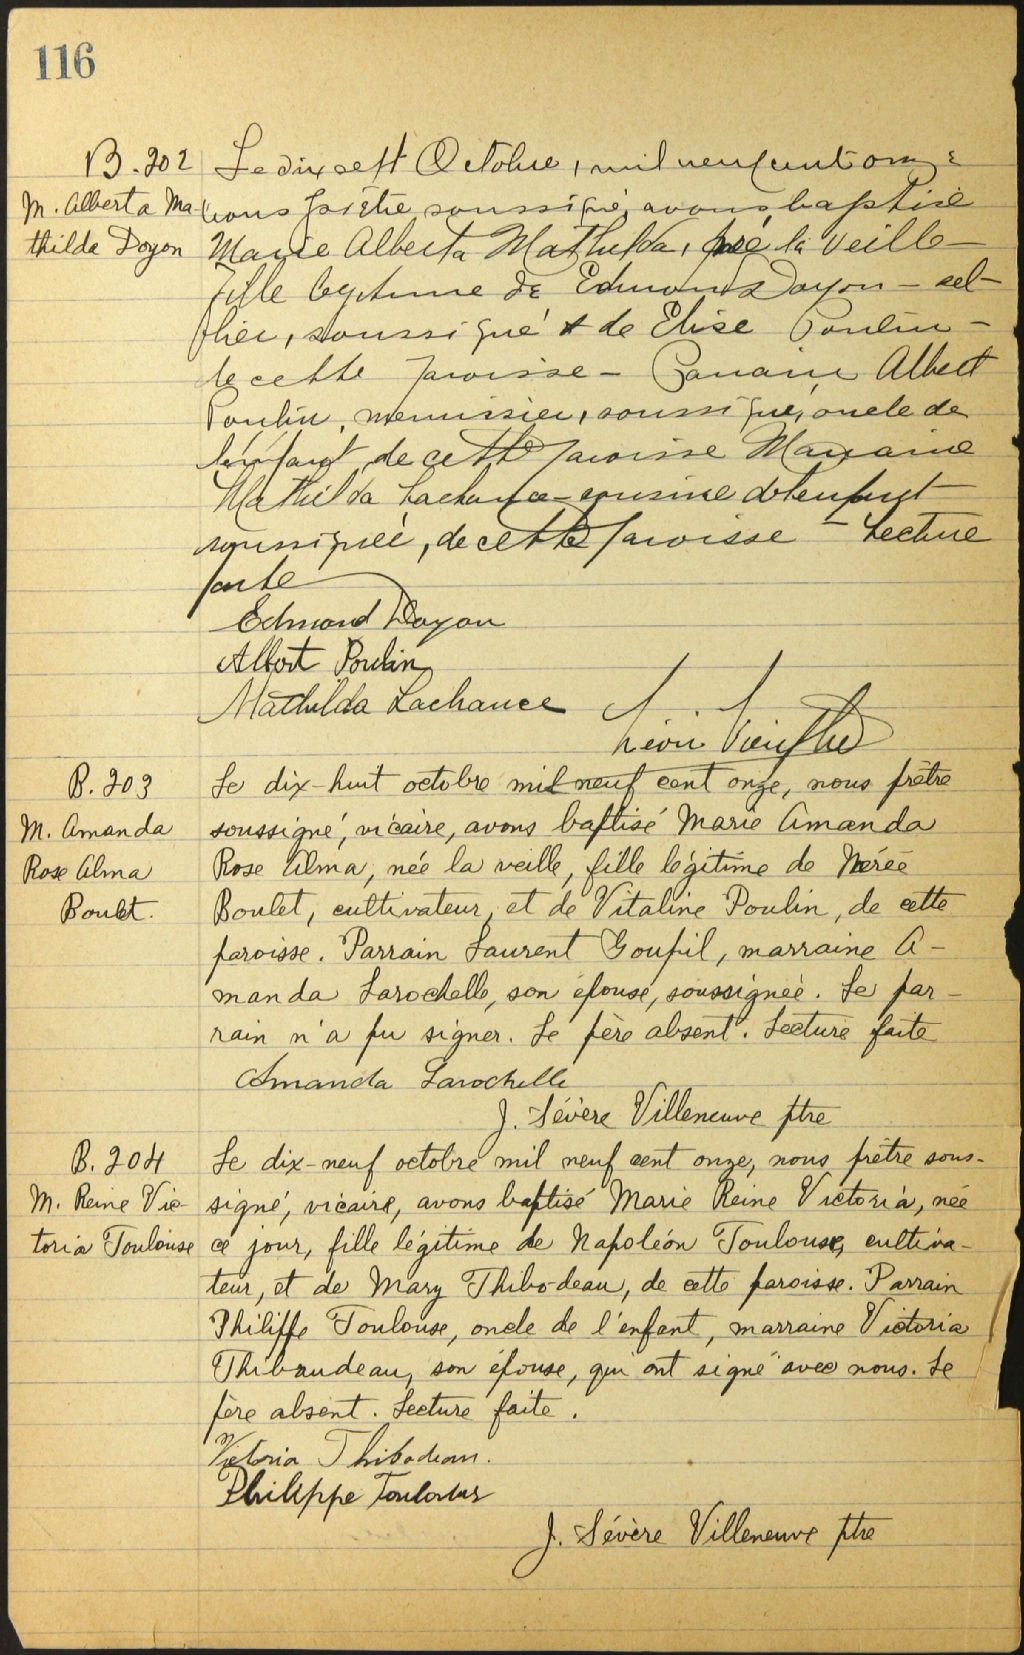 116
B. 202
M. Alberta Ma-
thilda Doyon
Le dix sept Octobre, mil neuf cent onze
nous prêtre soussigné, avons baptisé
Marie Alberta Mathilda, née la veille
fille légitime de Edmond Doyon - sel-
lier, soussigné & de Elise Poulin -
de cette paroisse - Parrain Albert
Poulin, menuisier, soussigné, oncle de
l'enfant, de cette paroisse Marraine
Mathilda Lachance - cousine de l'enfant
soussignée, de cette paroisse - Lecture
faite
Edmond Doyon
Albert Poulin
Mathilda Lachance
Léon
B. 203
M. Amanda
Rose Alma
Boulet.
Le dix-huit octobre mil neuf cent onze, nous prêtre
soussigné, vicaire, avons baptisé Marie Amanda
Rose Alma, née la veille, fille légitime de Nérée
Boulet, cultivateur, et de Vitaline Poulin, de cette
paroisse. Parrain Laurent Goupil, marraine A-
manda Larochelle, son épouse, soussignée. Le par-
rain n'a pu signer. Le père absent. Lecture faite
Amanda Larochelle
J. Sévère Villeneuve ptre
B. 204
M. Reine Vic-
toria Toulouse
Le dix-neuf octobre mil neuf cent onze, nous prêtre sous-
signé, vicaire, avons baptisé Marie Reine Victoria, née
ce jour, fille légitime de Napoléon Toulouse, cultiva-
teur, et de Mary Thibodeau, de cette paroisse. Parrain
Philippe Toulouse, oncle de l'enfant, marraine Victoria
Thibaudeau, son épouse, qui ont signé avec nous. Le
père absent. Lecture faite.
Victoria Thibodeau.
Philippe Toulouse
J. Sévère Villeneuve ptre